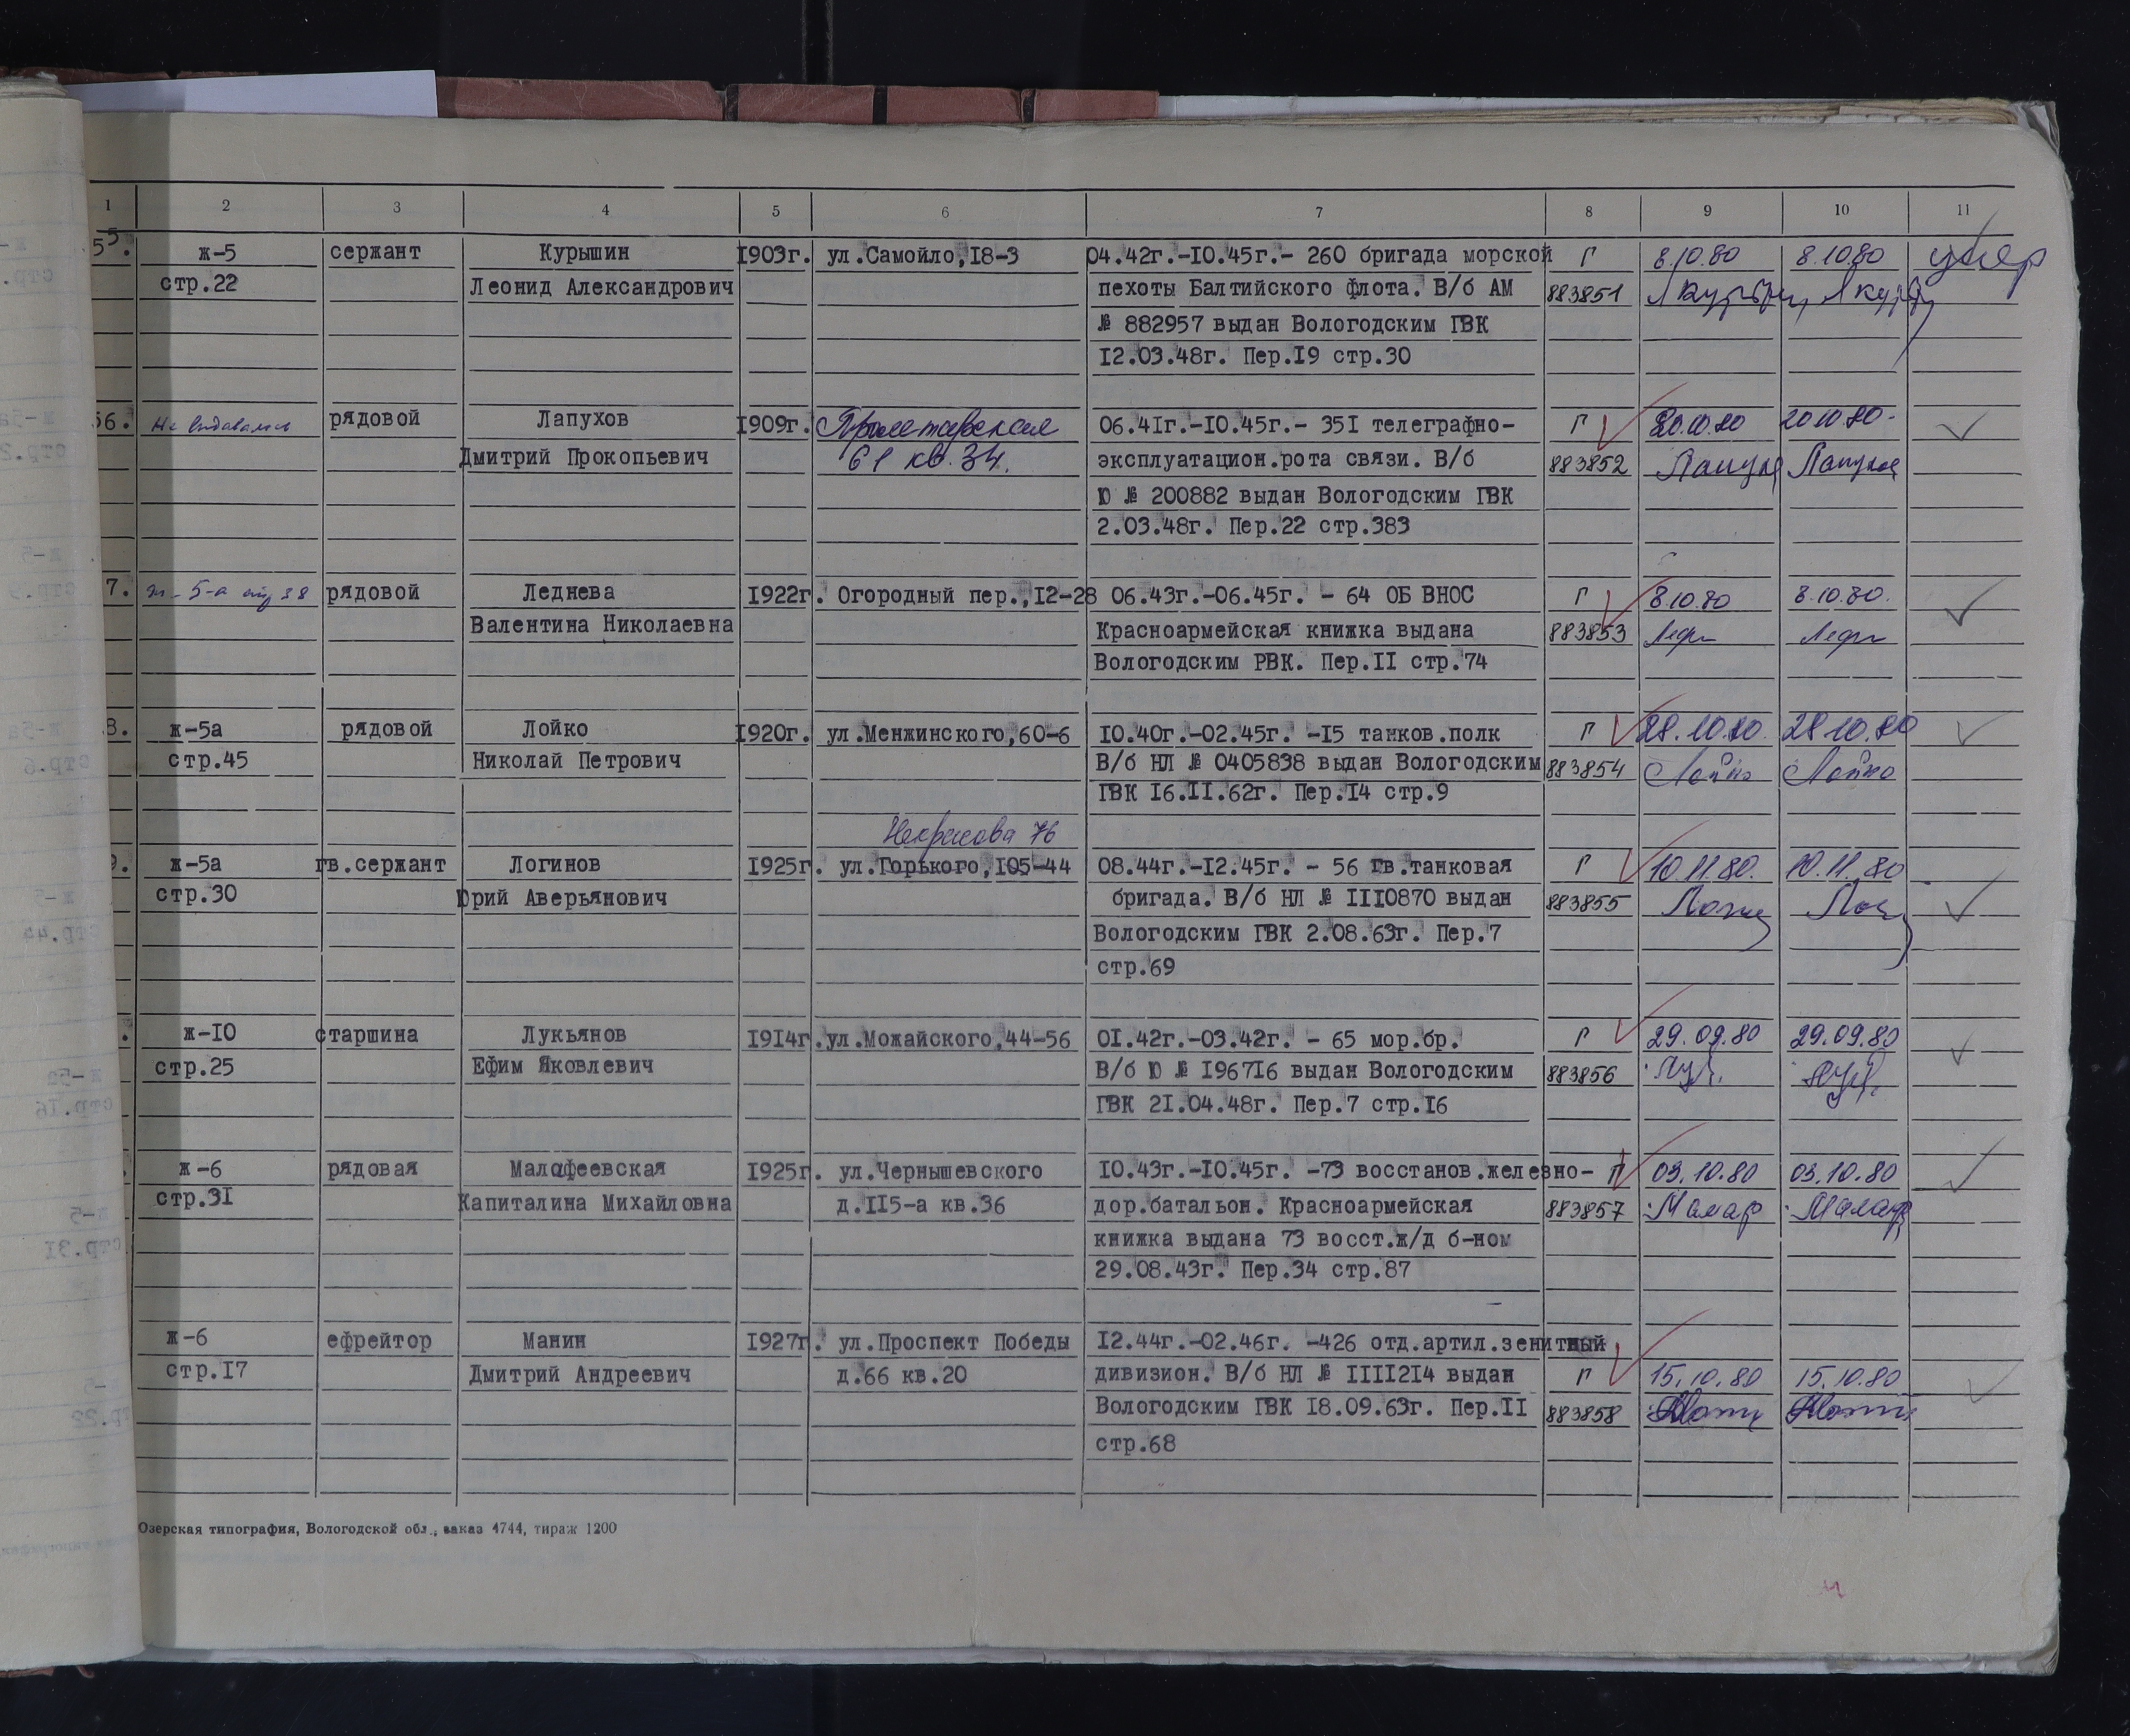 1 2 3 4 5 6 7 8 9 10 11
55. ж-5 сержант Курышин 1903г. ул.Самойло,18-3 04.42г.-10.45г.- 260 бригада морской Г 8.10.80 8.10.80 умер
стр.22 Леонид Александрович пехоты Балтийского флота. В/б АМ 883851
№ 882957 выдан Вологодским ГВК
12.03.48г. Пер.19 стр.30
56. Не выдавалась рядовой Лапухов 1909г. Пролетарская 06.41г.-10.45г.- 351 телеграфно- Г 20.10.80 20.10.80.
Дмитрий Прокопьевич 61 кв.34. эксплуатацион.рота связи. В/б 883852 Лапухов Лапухов
Ю № 200882 выдан Вологодским ГВК
2.03.48г. Пер.22 стр.383
7. ж-5-а стр 38 рядовой Леднева 1922г. Огородный пер.,12-28 06.43г.-06.45г. - 64 ОБ ВНОС Г 8.10.80 8.10.80.
Валентина Николаевна Красноармейская книжка выдана 883853
Вологодским РВК. Пер.11 стр.74
8. ж-5а рядовой Лойко 1920г. ул.Менжинского,60-6 10.40г.-02.45г. -15 танков.полк Г 28.10.80. 28.10.80
стр.45 Николай Петрович В/б НЛ № 0405838 выдан Вологодским 883854 Лойко Лойко
ГВК 16.11.62г. Пер.14 стр.9
Некрасова 76
9. ж-5а гв.сержант Логинов 1925г. ул.Горького,105-44 08.44г.-12.45г. - 56 гв.танковая Г 10.11.80. 10.11.80
стр.30 Юрий Аверьянович бригада. В/б НЛ № 1110870 выдан 883855
Вологодским ГВК 2.08.63г. Пер.7
стр.69
. ж-10 старшина Лукьянов 1914г. ул.Можайского,44-56 01.42г.-03.42г. - 65 мор.бр. Г 29.09.80 29.09.80
стр.25 Ефим Яковлевич В/б Ю № 196716 выдан Вологодским 883856
ГВК 21.04.48г. Пер.7 стр.16
. ж-6 рядовая Малофеевская 1925г. ул.Чернышевского 10.43г.-10.45г. -73 восстанов.железно- Г 03.10.80 03.10.80
стр.31 Капиталина Михайловна д.115-а кв.36 дор.батальон. Красноармейская 883857
книжка выдана 73 восст.ж/д б-ном
29.08.43г. Пер.34 стр.87
ж-6 ефрейтор Манин 1927г. ул.Проспект Победы 12.44г.-02.46г. -426 отд.артил.зенитный
стр.17 Дмитрий Андреевич д.66 кв.20 дивизион. В/б НЛ № 1111214 выдан Г 15.10.80 15.10.80
Вологодским ГВК 18.09.63г. Пер.11 883858
стр.68
Озерская типография, Вологодской обл., заказ 4744, тираж 1200